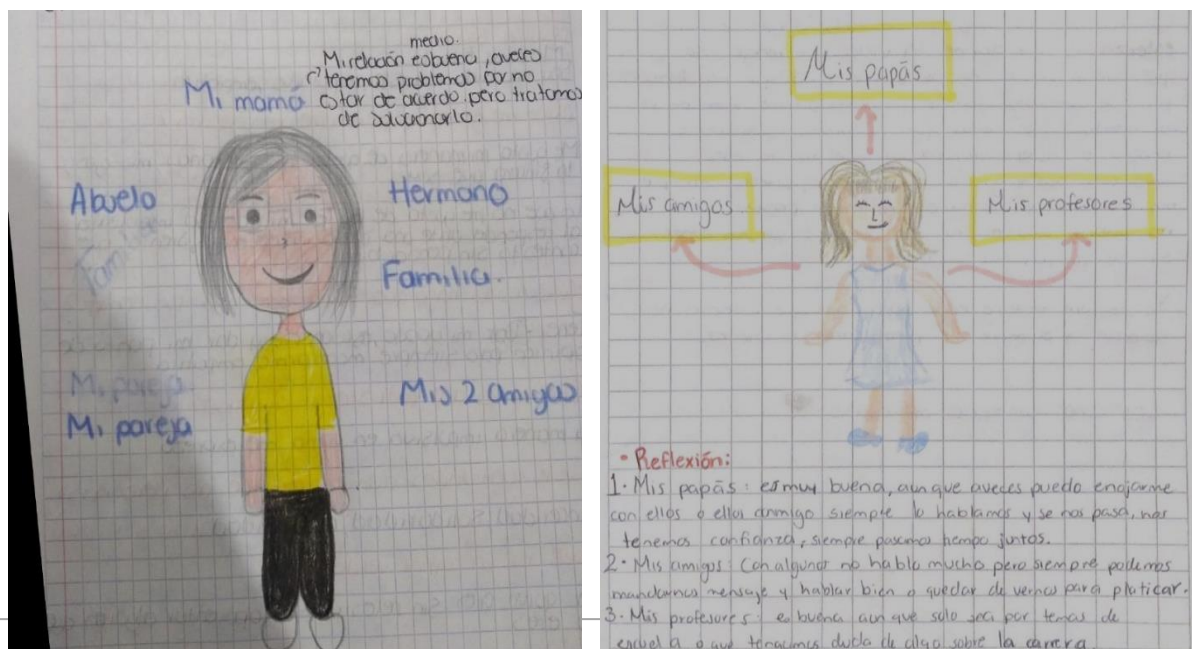 medio.
Mi relación es buena, aveces
tenemos problemas por no
estar de acuerdo pero tratamos
de solucionarlo.
Mi mamá
Abuelo
Hermano
Fam
Familia.
Mi pareja
Mi pareja
Mis 2 amigas
Mis papás
Mis amigos
Mis profesores
• Reflexión:
1. Mis papás: es muy buena, aunque aveces puedo enojarme
con ellos o ellos conmigo siempre lo hablamos y se nos pasa, nos
tenemos confianza, siempre pasamos tiempo juntos.
2. Mis amigos: Con algunos no hablo mucho pero siempre podemos
mandarnos mensaje y hablar bien o quedar de vernos para platicar.
3. Mis profesores: es buena aun que solo sea por temas de
escuela o que tengamos duda de algo sobre la carrera